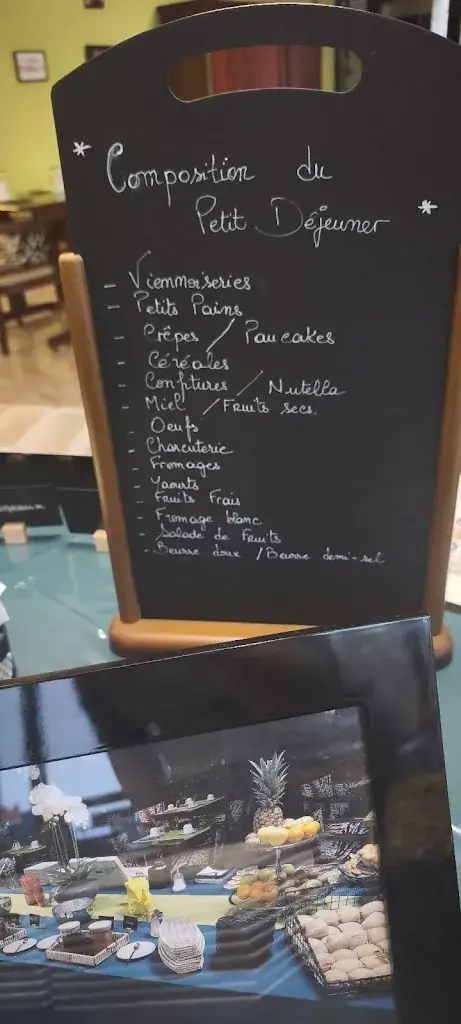 * Composition du
Petit Déjeuner *
- Viennoiseries
- Petits Pains
- Crêpes / Pancakes
- Céréales
- Confitures / Nutella
- Miel / Fruits secs.
- Oeufs
- Charcuterie
- Fromages
- Yaourts
- Fruits Frais
- Fromage blanc
- Salade de Fruits
- Beurre doux / Beurre demi-sel